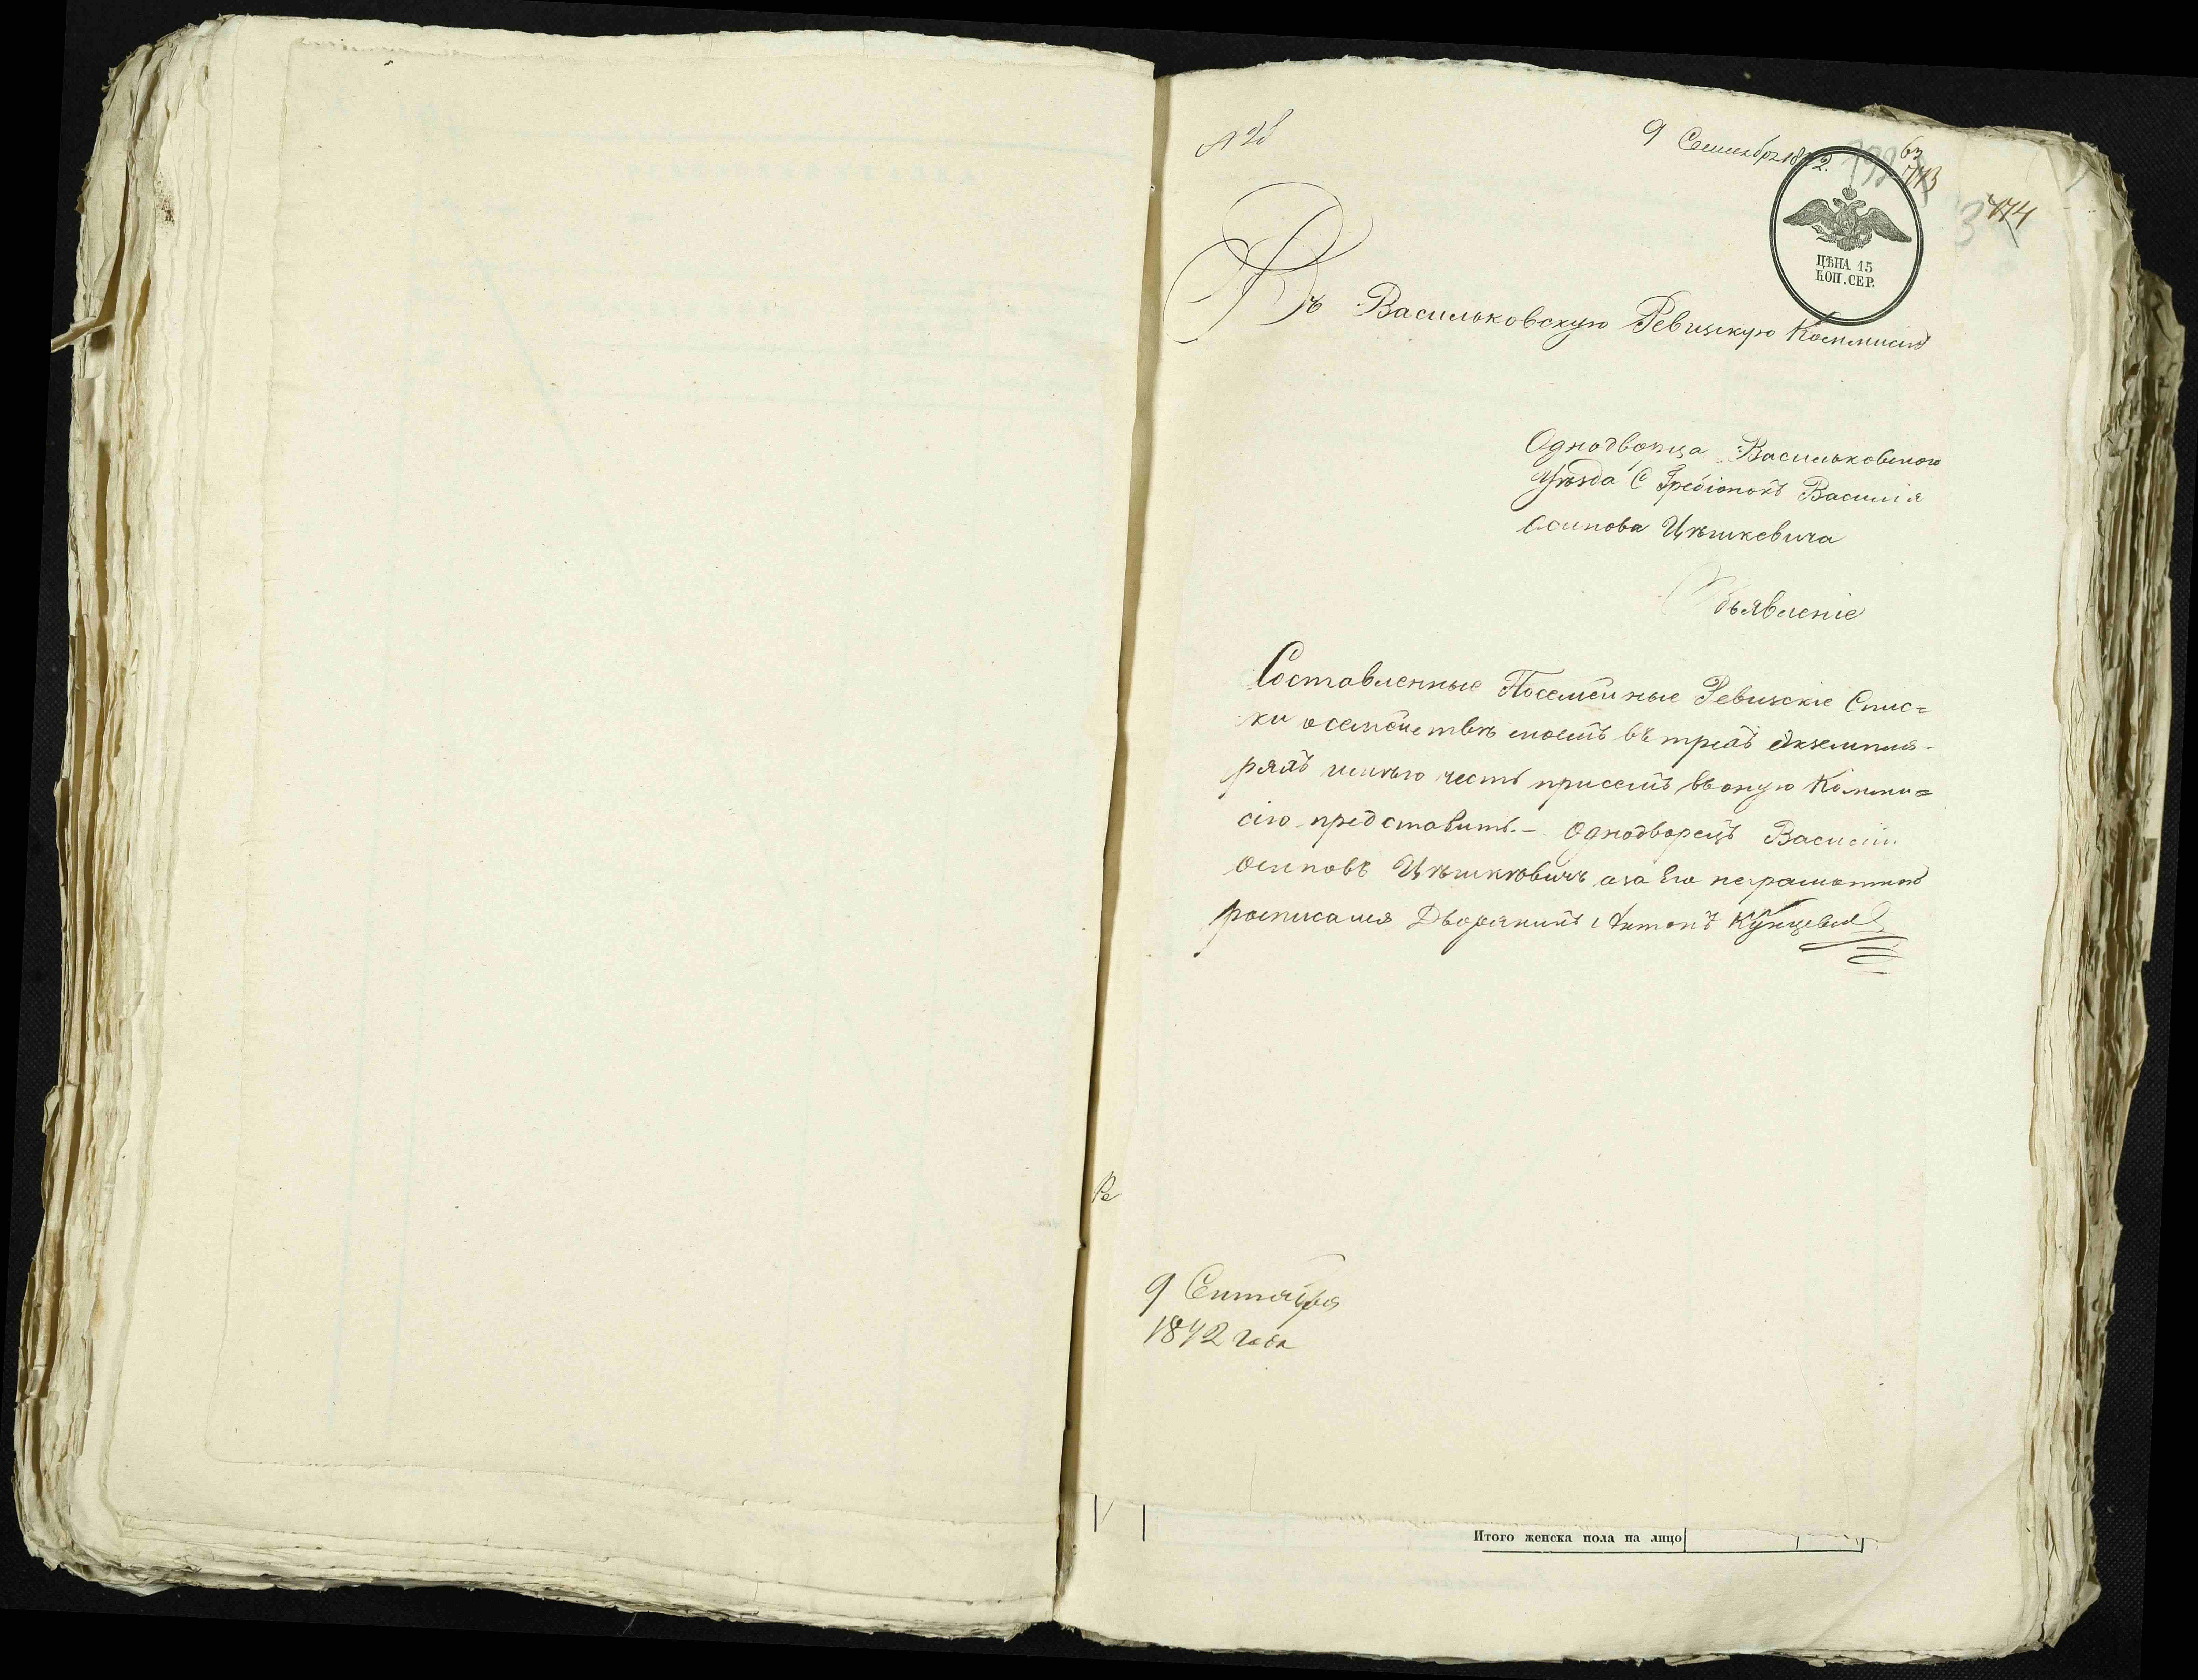 9 Сентября 1842.
63
773
774
ЦѢНА 15
КОП. СЕР.
Въ Васильковскую Ревизскую Коммисію
Однодворца Васильковского
Уѣзда С Гребіонокъ Василія
Осипова Цѣшкевича
Объявленіе
Составленные Посемейные Ревизскіе Спис=
ки о семействѣ моемъ въ трехъ экземпля-
рахъ имѣю честь присемъ въ оную Комми=
сію представить.- Однодворецъ Василій
Осиповъ Цѣшкѣвичъ а за Его неграмотного
росписался Дворянинъ Антонъ
9 Сентября
1842 года
Итого женска пола на лицо